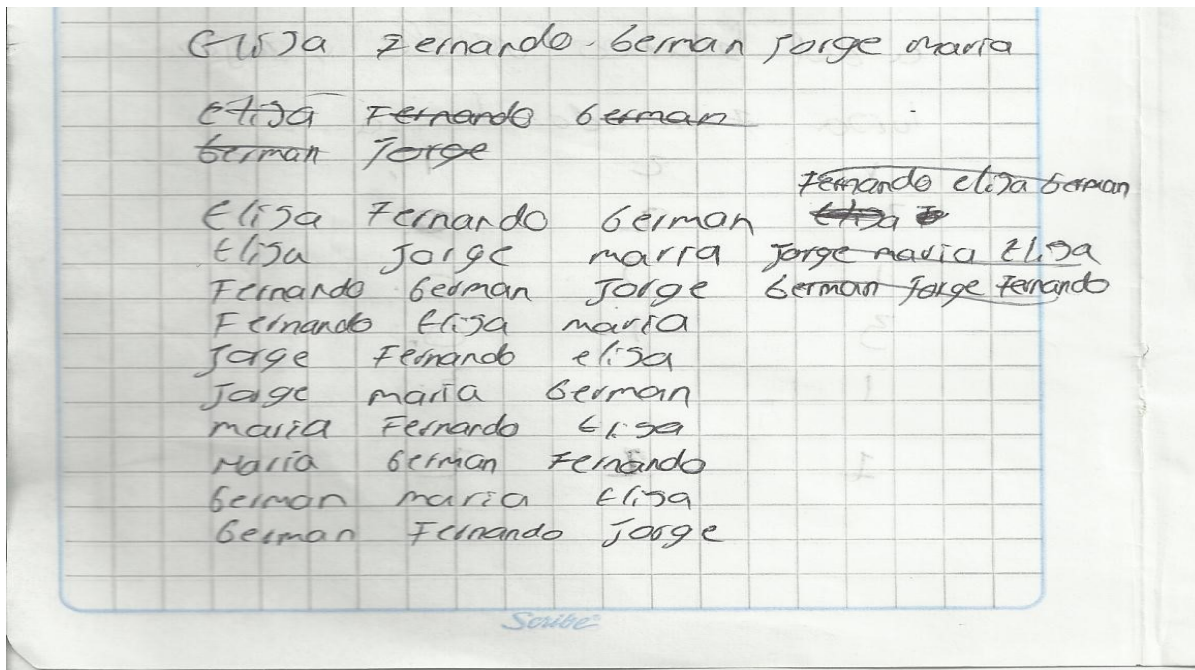 Elisa Fernando German Jorge maria
Elisa Fernando German
German Jorge
Fernando elisa German
Elisa Fernando German Elisa
Elisa Jorge maria Jorge maria Elisa
Fernando German Jorge German Jorge Fernando
Fernando Elisa maria
Jorge Fernando elisa
Jorge maria German
maria Fernando Elisa
Maria German Fernando
German maria Elisa
German Fernando Jorge
Scribe